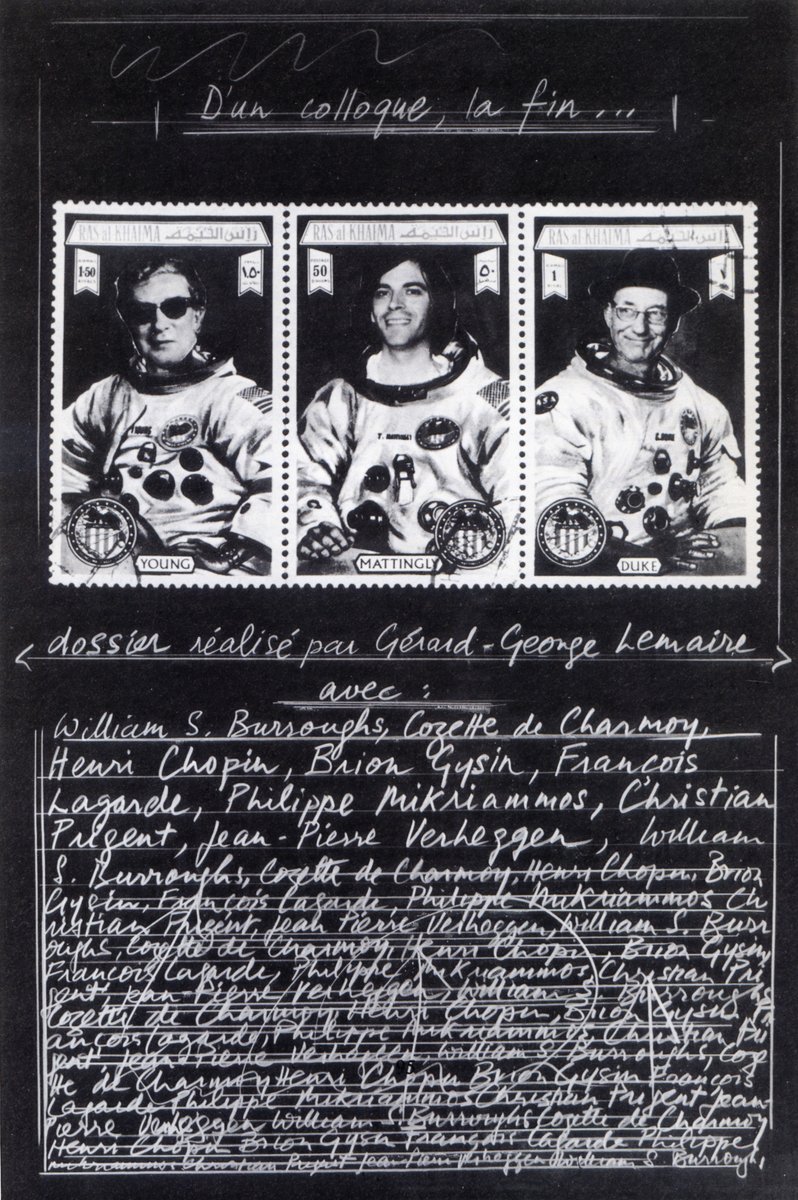 D'un colloque, la fin...
RAS al KHAIMA رأس الخيمة
1·50
١٫٥٠
YOUNG
RAS al KHAIMA رأس الخيمة
POSTAGE
50
٥٠
T. MATTINGLY
MATTINGLY
RAS al KHAIMA رأس الخيمة
1
١
C. DUKE
DUKE
dossier réalisé par Gérard-George Lemaire
avec :
William S. Burroughs, Cozette de Charmoy,
Henri Chopin, Brion Gysin, François
Lagarde, Philippe Mikriammos, Christian
Prigent, Jean-Pierre Verheggen, William
S. Burroughs, Cozette de Charmoy, Henri Chopin, Brion
Gysin, François Lagarde, Philippe Mikriammos Ch
ristian Prigent, Jean Pierre Verheggen, William S. Burr
oughs, Cozette de Charmoy, Henri Chopin, Brion Gysin,
François Lagarde, Philippe Mikriammos Christian Pri
gent, Jean-Pierre Verheggen, William S Burroughs
Cozette de Charmoy, Henri Chopin, Brion Gysin Fr
ançois Lagarde, Philippe Mikriammos Christian Pri
gent Jean-Pierre Verheggen, William S. Burroughs, Coze
tte de Charmoy Henri Chopin Brion Gysin François
Lagarde Philippe Mikriammos Christian Prigent Jean-
Pierre Verheggen William S Burroughs Cozette de Charmoy
Henri Chopin Brion Gysin François Lagarde Philippe
Mikriammos Christian Prigent Jean Pierre Verheggen William S Burroughs,